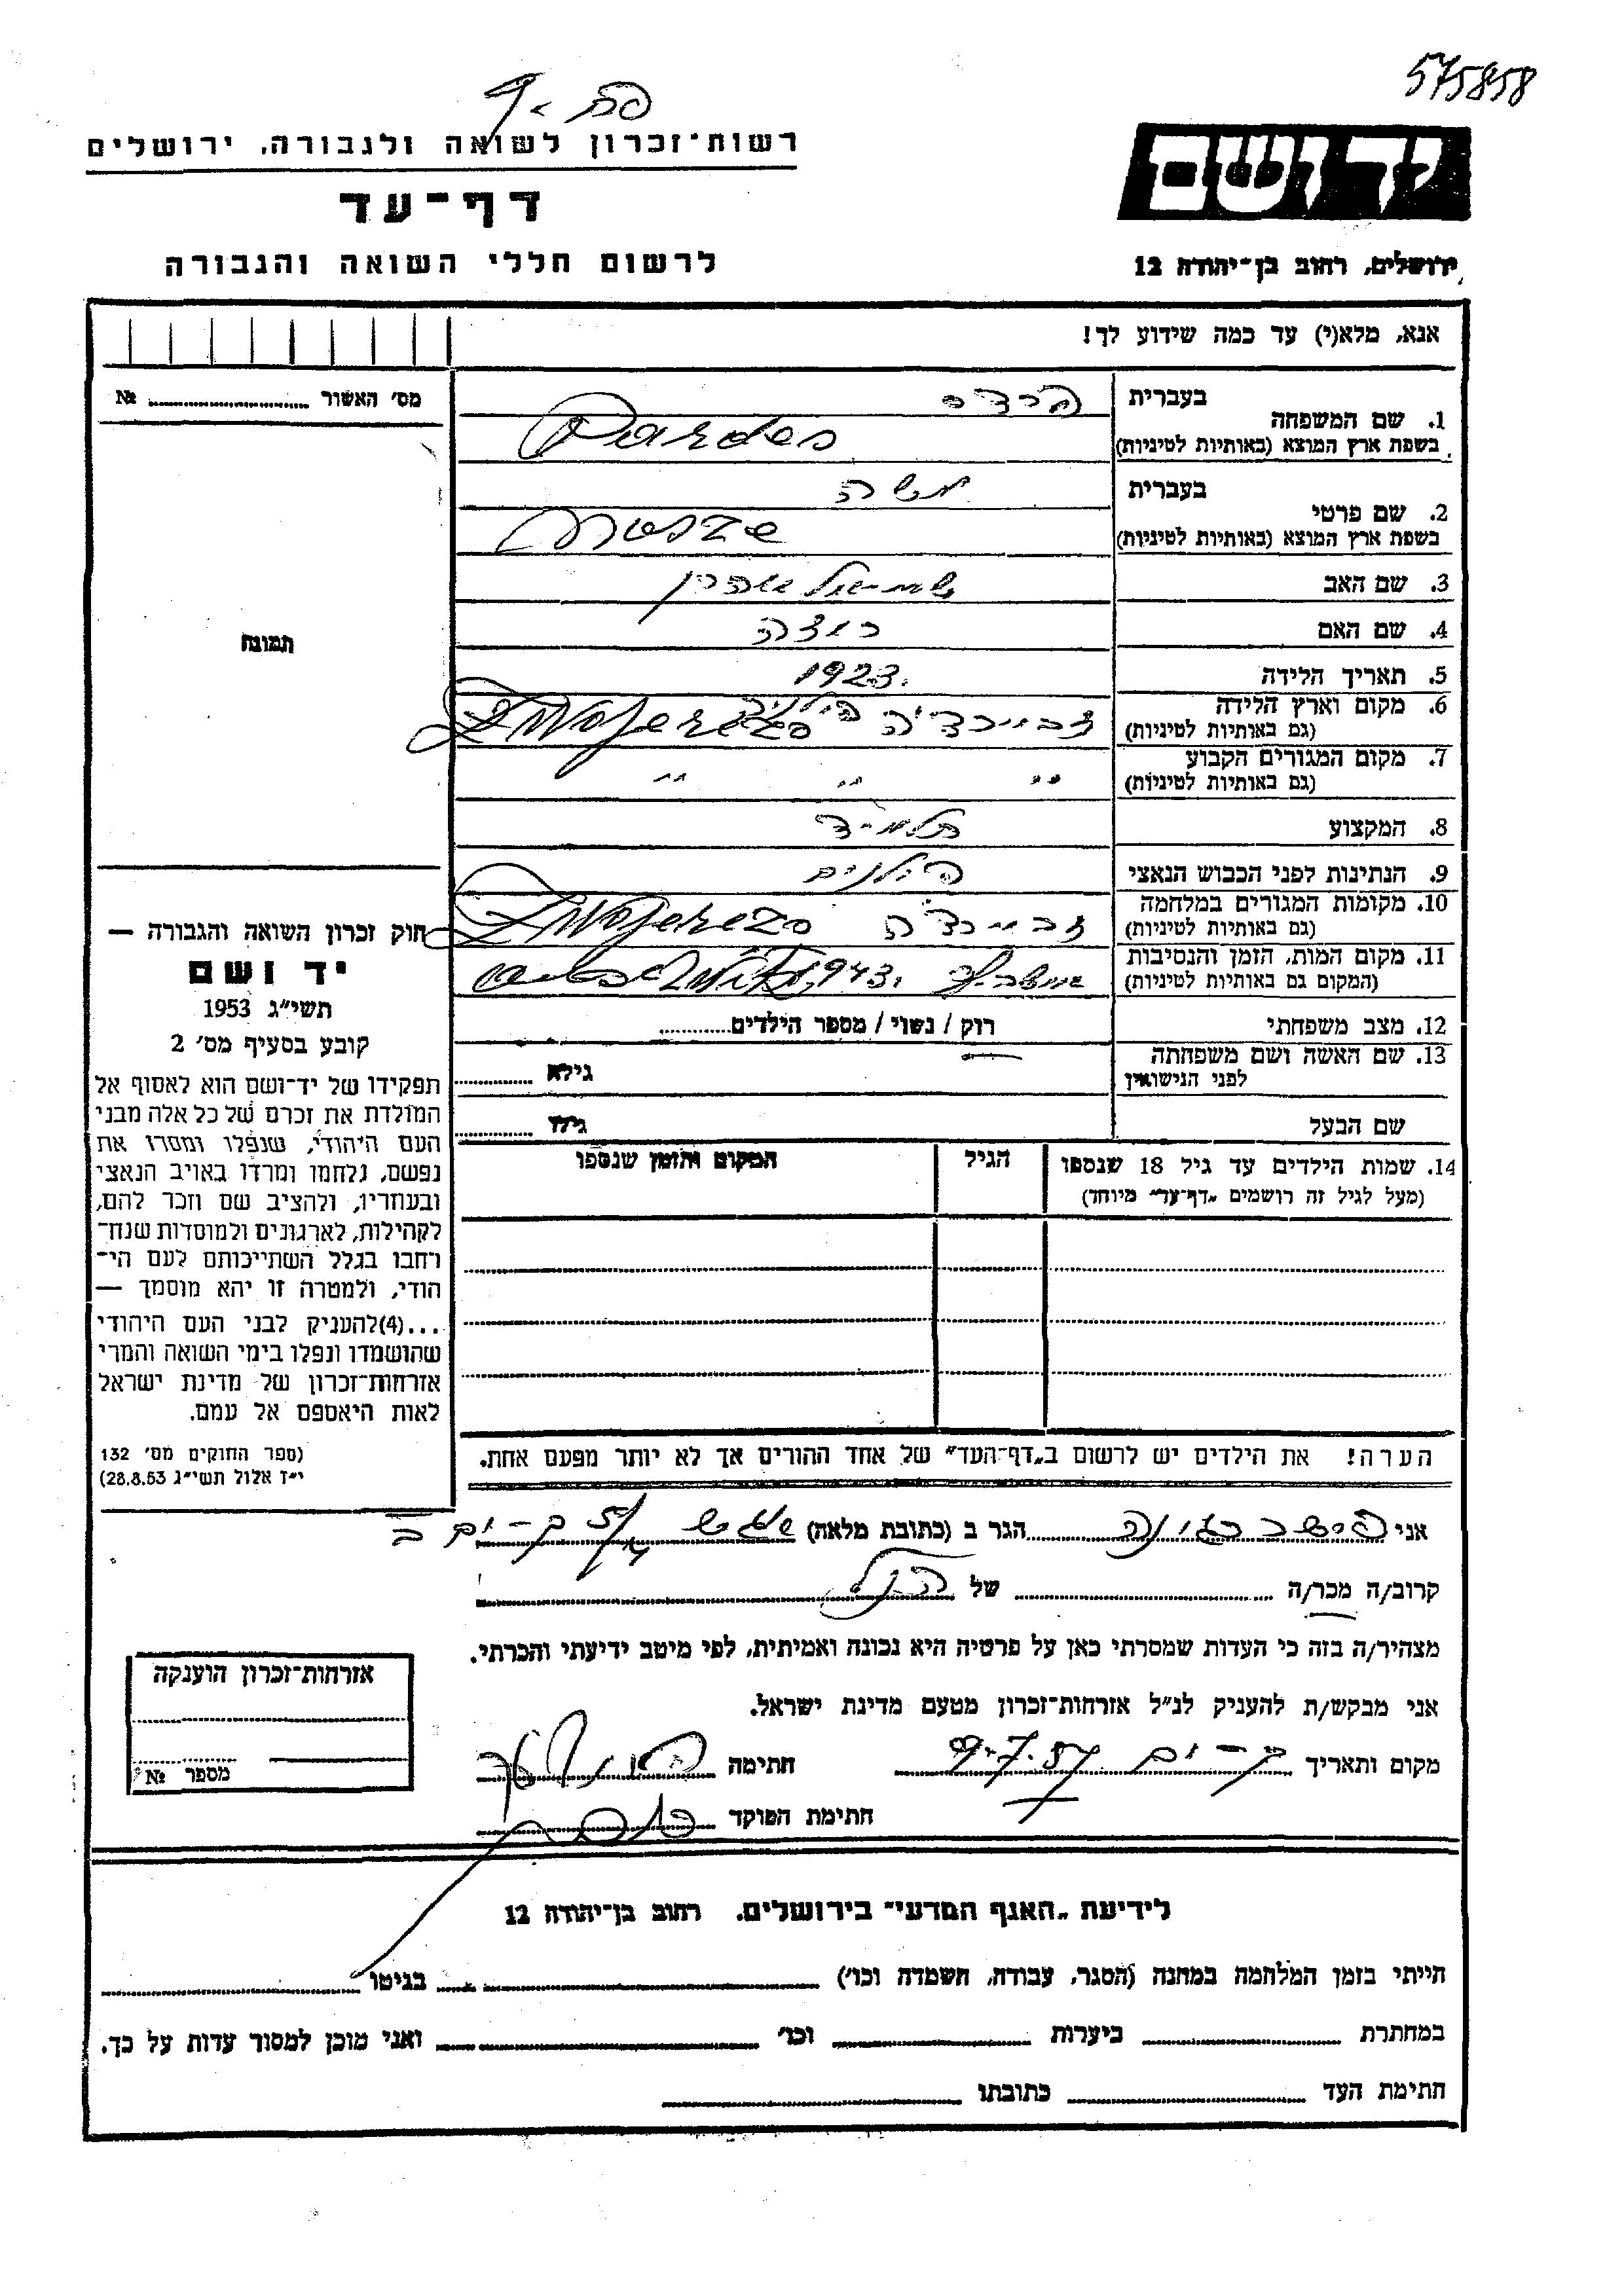 575858
יד ושם
ירושלים, רחוב בן־יהודה 12
רשות־זכרון לשואה ולגבורה, ירושלים
דף־עד
לרשום חללי השואה והגבורה
אנא, מלא(י) עד כמה שידוע לך!
מס׳ האשור № 
1. שם המשפחה
בעברית פרדס
בשפת ארץ המוצא (באותיות לטיניות) Pardes
2. שם פרטי
בעברית משה
בשפת ארץ המוצא (באותיות לטיניות) Mosze
3. שם האב שמואל אהרן
4. שם האם
5. תאריך הלידה 1923.
6. מקום וארץ הלידה
(גם באותיות לטיניות)
7. מקום המגורים הקבוע
(גם באותיות לטיניות) " " "
8. המקצוע תלמיד
9. הנתינות לפני הכבוש הנאצי פולנים
10. מקומות המגורים במלחמה
(גם באותיות לטיניות)
11. מקום המות, הזמן והנסיבות
(המקום גם באותיות לטיניות) 1943.
12. מצב משפחתי רוק / נשוי / מספר הילדים
13. שם האשה ושם משפחתה
לפני הנישואין גילא
שם הבעל גילו
14. שמות הילדים עד גיל 18 שנספו
(מעל לגיל זה רושמים „דף־עד״ מיוחד)
הגיל
המקום והזמן שנספו
הערה! את הילדים יש לרשום ב„דף־העד״ של אחד ההורים אך לא יותר מפעם אחת.
תמונה
חוק זכרון השואה והגבורה —
יד ושם
תשי״ג 1953
קובע בסעיף מס׳ 2
תפקידו של יד־ושם הוא לאסוף אל
המולדת את זכרם של כל אלה מבני
העם היהודי, שנפלו ומסרו את
נפשם, נלחמו ומרדו באויב הנאצי
ובעוזריו, ולהציב שם וזכר להם,
לקהילות, לארגונים ולמוסדות שנח־
רחבו בגלל השתייכותם לעם הי־
הודי, ולמטרה זו יהא מוסמך —
...(4)להעניק לבני העם היהודי
שהושמדו ונפלו בימי השואה והמרי
אזרחות־זכרון של מדינת ישראל
לאות היאספם אל עמם.
(ספר החוקים מס׳ 132
י״ז אלול תשי״ג 28.8.53)
אני הגר ב (כתובת מלאה)
קרוב/ה מכר/ה של הנ״ל
מצהיר/ה בזה כי העדות שמסרתי כאן על פרטיה היא נכונה ואמיתית, לפי מיטב ידיעתי והכרתי.
אני מבקש/ת להעניק לנ״ל אזרחות־זכרון מטעם מדינת ישראל.
מקום ותאריך בת-ים 9.7.57 חתימה
חתימת הפוקד
אזרחות־זכרון הוענקה
מספר №
לידיעת „האגף המדעי״ בירושלים, רחוב בן־יהודה 12
הייתי בזמן המלחמה במחנה (הסגר, עבודה, השמדה וכו׳) בגיטו
במחתרת ביערות וכו׳ ואני מוכן למסור עדות על כך.
חתימת העד כתובתו